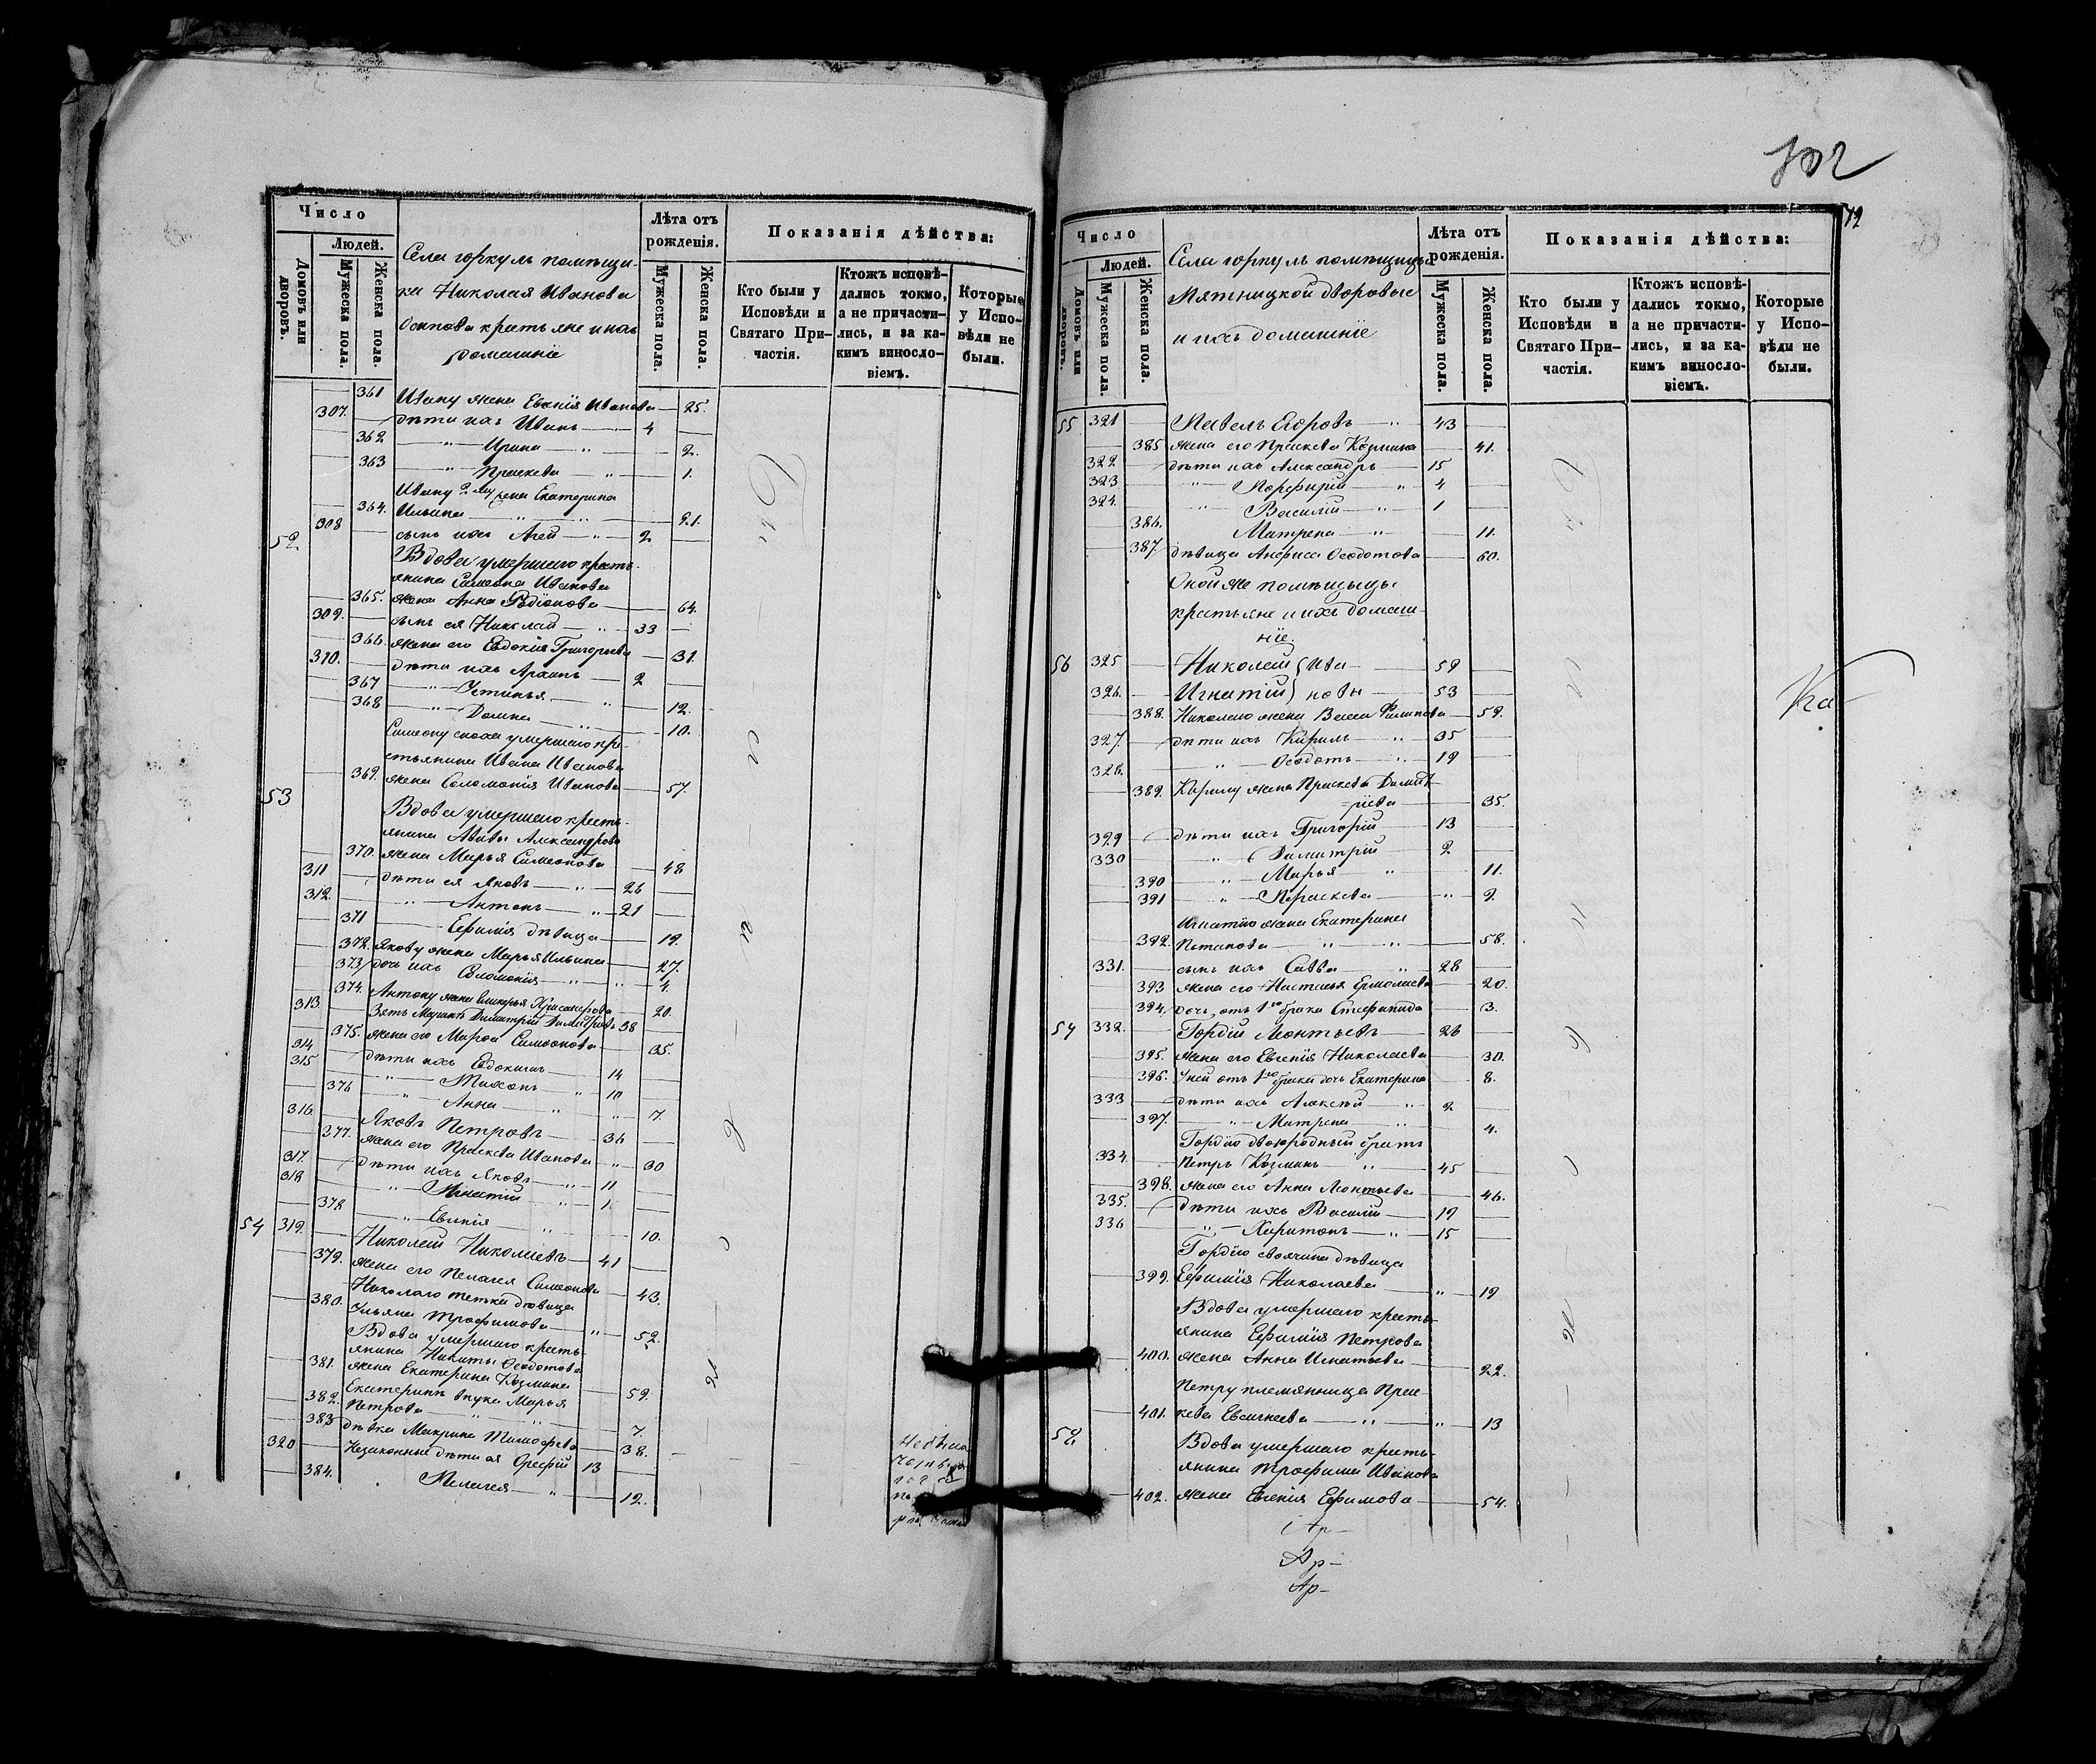 Число
Людей.
Домовъ или дворовъ.
Мужеска пола.
Женска пола.
Села горкуль помѣщи-
ка Николая Иванова
Осипова крестьяне и ихъ
домашніе
Лѣта отъ рожденія.
Мужеска пола.
Женска пола.
Показанія дѣйства:
Кто были у Исповѣди и Святаго При-частія.
Ктожъ исповѣ-дались токмо, а не причасти-лись, и за ка-кимъ винословіемъ.
Которые у Испо-вѣди не были.
361 Ивану жена Евгенія Иванова 25.
307. дѣти ихъ Иванъ 4
362 " Ирина " 2.
363 " Праскева " 1.
Ивану 2му жена Екатерина
364. Ильина " " 21.
308 сынъ ихъ Агей " 2
52
Вдова умершаго кресть-
янина Симеона Иванова
365. жена Анна Родіонова 64.
309. сынъ ея Николай " 33
366. жена его Евдокія Григорьева 31.
310. дѣти ихъ Архипъ 2
367 " Устинья " 12.
368 " Домна " 10.
Симеону сноха умершаго кре-
стьянина Ивана Иванова
369. жена Соломонія Иванова 57.
53
Вдова умершаго кресть-
янина Александрова
370. жена Марья Симеонова 48
311 дѣти ея Яковъ " 26
312. " Антонъ " 21
371 Ефимія дѣвица 19.
372. Якову жена Марья Ильина 27.
373 дочь ихъ Соломонія " " 4.
374. Антону жена Гликерья Хрисанфова 20.
313 Зять Марьинъ Димитрій Димитріевъ 38
375. жена его Марья Симеонова 35.
314 дѣти ихъ Евдокимъ 14
315 " Тихонъ " 10
376 " Анна " " 7.
316. Яковъ Петровъ 36
377. жена его Праскева Иванова " 30
317 дѣти ихъ Яковъ " 11
318 " Игнатій " 1.
378 " Евгенія " 10.
54 319. Николай Николаевъ 41
379. жена его Пелагея Симеонова 43.
Николаю тетка дѣвица
380. Ульяна Трофимова " 52.
Вдова умершаго кресть-
янина Никиты Ѳеодотова
381. жена Екатерина Козмина 59.
Екатеринѣ внука Марья
382. Петрова " " 7.
383 дѣвка Макрина Тимофеева 38.
320 Незаконные дѣти ея Орефій 13
384. Пелагея " 12.
102
72
Число
Людей.
Домовъ или дворовъ.
Мужеска пола.
Женска пола.
Села горкуль помѣщицы
Мятницкой дворовые
и ихъ домашніе
Лѣта отъ рожденія.
Мужеска пола.
Женска пола.
Показанія дѣйства:
Кто были у Исповѣди и Святаго При-частія.
Ктожъ исповѣ-дались токмо, а не причасти-лись, и за ка-кимъ винословіемъ.
Которые у Испо-вѣди не были.
55 321 Павелъ Егоровъ " 43
385 жена его Праскева Козмина 41.
322 дѣти ихъ Александръ 15
323 " Порфирій " 4
324. " Василій " 1
386. Матрена " 11.
387. дѣвица Анфиса Ѳеодотова 60.
Оной же помѣщицы
крестьяне и ихъ домаш-
ніе.
56 325 Николай } Ива 59
326. Игнатій } новы 53
388. Николаю жена Васса Филипова 59.
327. дѣти ихъ Кирилъ " 35
328. " Ѳеодотъ " 19
389. Кирилу жена Праскева Димит-
ріева 35.
329 дѣти ихъ Григорій 13
330 " Димитрій 2
390 " Марья " 11.
391 " Праскева " 9.
Игнатію жена Екатерина
392. Потапова " " 58.
331. сынъ ихъ Савва " 28
393 жена его Настасья Ермолаева 20.
394. дочь отъ 1го брака Стефанида 3.
57 332. Гордій Леонтьевъ 26
395. жена его Евгенія Николаева 30.
396. У ней отъ 1го брака дочь Екатерина 8.
333 дѣти ихъ Алексѣй " 2
397. " Матрена " 4.
Гордію двоюродный братъ
334. Петръ Козминъ " 45
398. жена его Анна Леонтьева 46.
335. дѣти ихъ Василій 19
336 " Харитонъ " 15
Гордію своячина дѣвица
399. Ефимія Николаева " 19
Вдова умершаго кресть-
янина Ефимія Петрова
400. жена Анна Игнатьева 22.
Петру племянница Прас-
401. кева Евсигнеева " " 13
58
Вдова умершаго кресть-
янина Трофима Иванова
402. жена Евгенія Ефимова 54.
Ар-
Ар-
Ар-